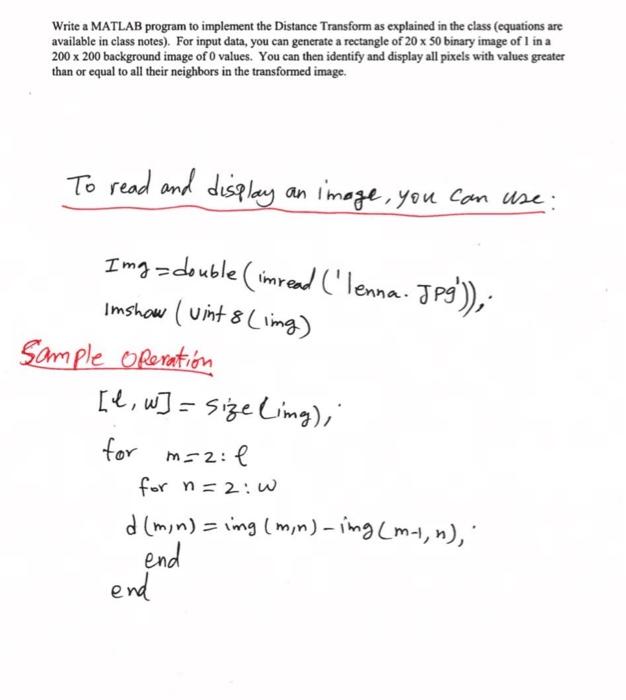 Write a MATLAB program to implement the Distance Transform as explained in the class (equations are
available in class notes). For input data, you can generate a rectangle of 20 x 50 binary image of 1 in a
200 x 200 background image of 0 values. You can then identify and display all pixels with values greater
than or equal to all their neighbors in the transformed image.
To read and display an image, you can use:
Img=double(imread('lenna.JPg'));
Imshow(Uint8(img)
Sample Operation
[l,w]=size(img);
for m=2:l
for n=2:w
d(m,n)=img(m,n)-img(m-1,n);
end
end